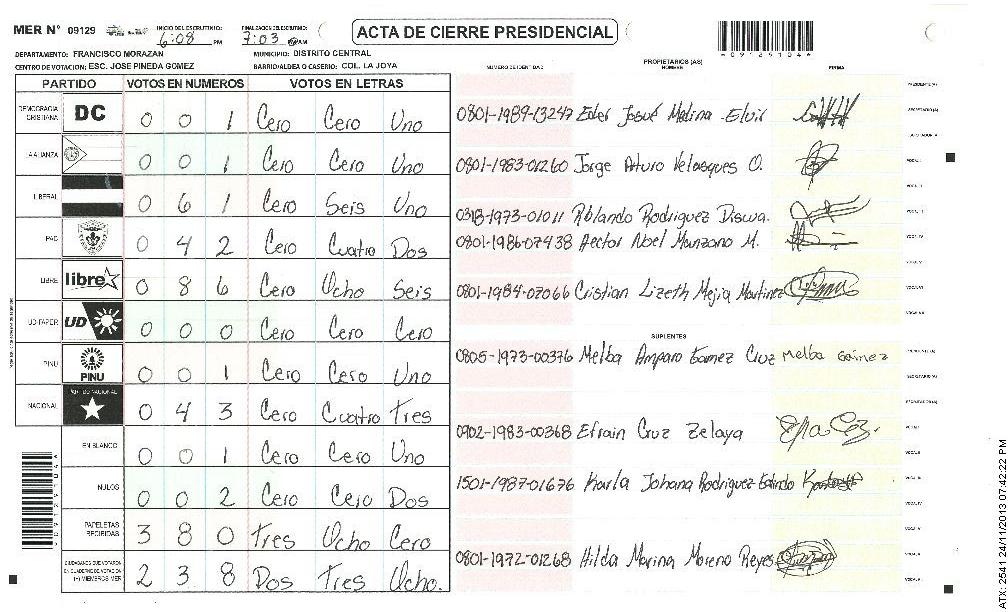 MER Nº 09129 INICIO DEL ESCRUTINIO: 6:08 PM FINALIZACION DEL ESCRUTINIO: 7:03 AM
ACTA DE CIERRE PRESIDENCIAL
*09129104*
DEPARTAMENTO: FRANCISCO MORAZAN MUNICIPIO: DISTRITO CENTRAL
CENTRO DE VOTACION: ESC. JOSE PINEDA GOMEZ BARRIO/ALDEA O CASERIO: COL. LA JOYA
PARTIDO VOTOS EN NUMEROS VOTOS EN LETRAS
DEMOCRACIA CRISTIANA DC 0 0 1 Cero Cero Uno
ALIANZA 0 0 1 Cero Cero Uno
LIBERAL 0 6 1 Cero Seis Uno
PAC 0 4 2 Cero Cuatro Dos
LIBRE libre 0 8 6 Cero Ocho Seis
UD-FAPER UD 0 0 0 Cero Cero Cero
PINU PINU 0 0 1 Cero Cero Uno
NACIONAL PARTIDO NACIONAL 0 4 3 Cero Cuatro Tres
EN BLANCO 0 0 1 Cero Cero Uno
NULOS 0 0 2 Cero Cero Dos
PAPELETAS RECIBIDAS 3 8 0 Tres Ocho Cero
CIUDADANOS QUE VOTARON EN CUADERNO DE VOTACION (+) MIEMBROS MER 2 3 8 Dos Tres Ocho.
PROPIETARIOS (AS)
NUMERO DE IDENTIDAD NOMBRE FIRMA
0801-1989-13247 Eder Josué Molina Elvir
0801-1983-01260 Jorge Arturo Velasques O.
0318-1973-01011 Rolando Rodriguez Discua.
0801-1986-07438 Hector Noel Manzano M.
0801-1984-07066 Cristian Lizeth Mejia Martinez
SUPLENTES
0805-1973-00376 Melba Amparo Gomez Cruz Melba Gómez
0902-1983-00368 Efrain Cruz Zelaya
1501-1987-01676 Karla Johana Rodriguez Galindo
0801-1972-01268 Hilda Marina Moreno Reyes
ATX: 2541 24/11/2013 07:42:22 PM